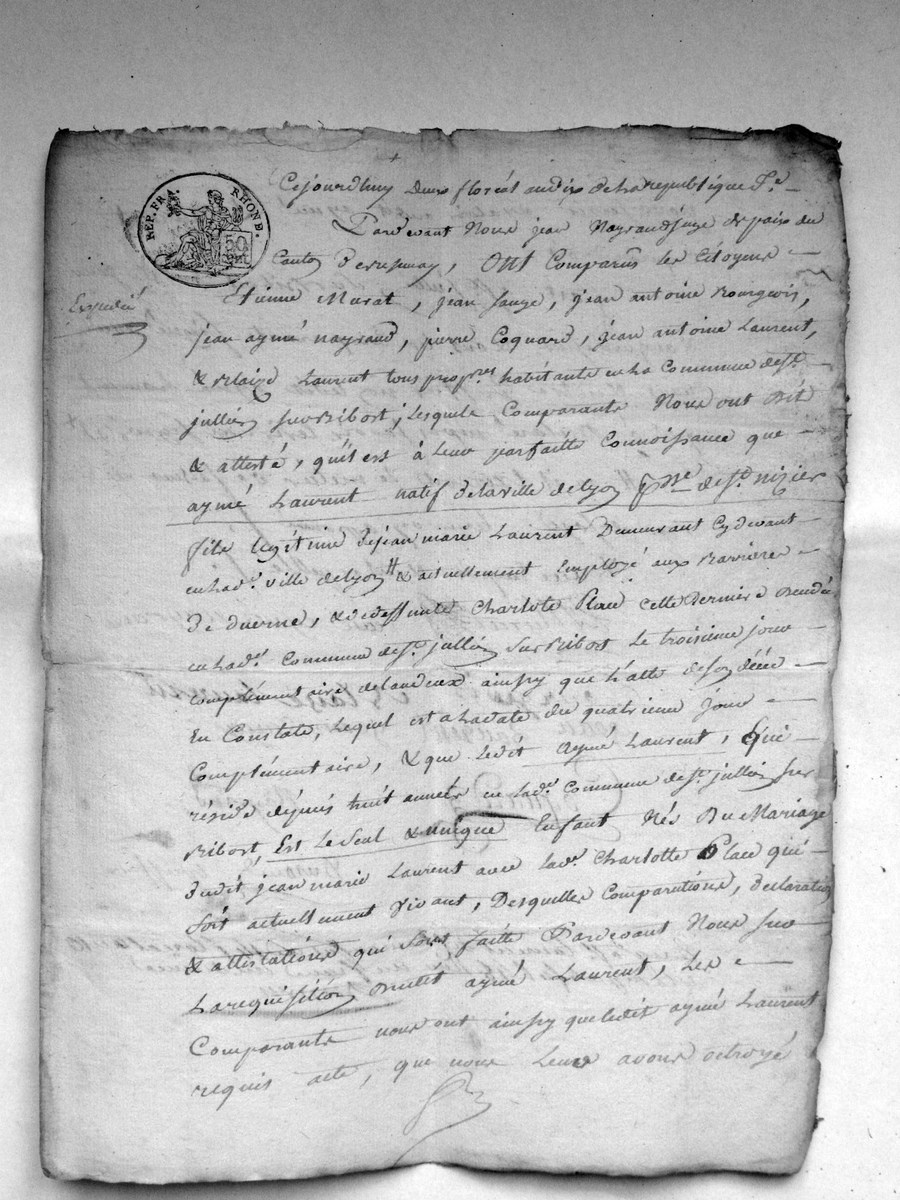 REP. FRA. RHONE.
50
Cejourdhuy deux floréal an dix de la republique f.se
Pardevant Nous jean Nayrand juge de paix du
Canton ont Comparûs les Citoyens
Expedié
Etienne Murat, jean Sauze, jean antoine Bourgeois,
jean aymé nayrand, pierre Coquard, jean antoine Laurent,
& Blaize Laurent tous prop.res habitants en la Commune de St.
jullien sur Bibost; lesquels Comparants Nous ont dit
& attesté, qu'il est à leur parfaitte Connoissance que
aymé Laurent natif de la ville de lyon de St. nizier
fils legitime de jean marie Laurent Demeurant Cydevant
en lad.e ville de lyon & actuellement Employé aux Barrieres
De duerne, & de deffunte Charlote Place cette derniere decedée
en lad.e Commune de St. jullien sur Bibost le troisieme jour
complémentaire de l'an deux ainsy que l'acte de son décès
En Constate, lequel est a la date du quatrieme jour
Complémentaire, & que ledit aymé Laurent, qui
réside dépuis huit années en lad.e Commune de St. jullien sur
Bibost, Est le Seul & unique Enfant Nés Du Mariage
Dudit jean marie Laurent avec lad.e Charlotte Place qui
soit actuellement vivant, Desquelles Comparutions, declarations
& attestations qui sont faitte Pardevant Nous sur
La requisition dudit aymé Laurent, Les
Comparants nous ont ainsy que ledit aymé Laurent
requis acte, que nous leurs avons octroyé